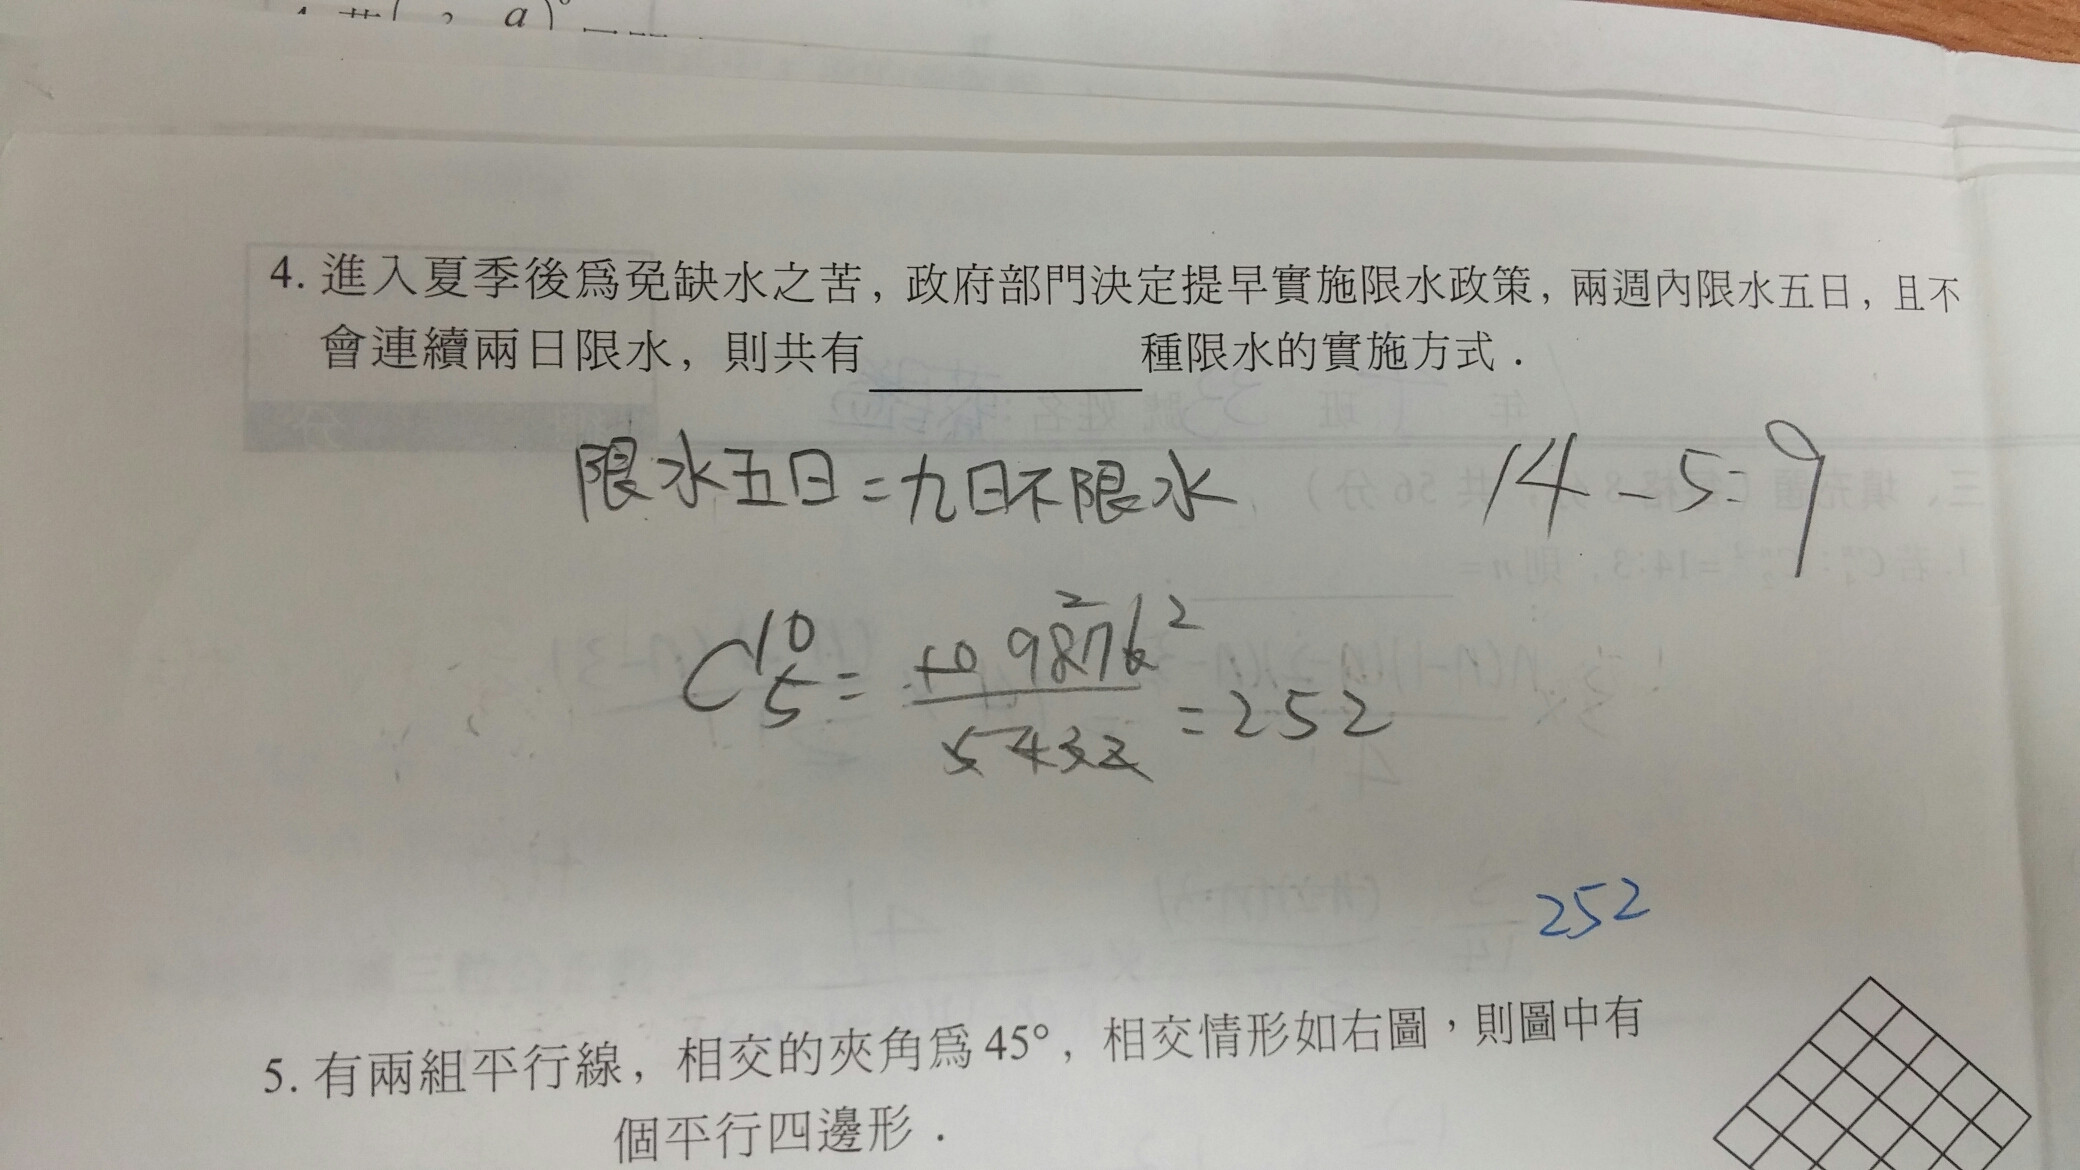 a
4. 進入夏季後爲免缺水之苦，政府部門決定提早實施限水政策，兩週內限水五日，且不
會連續兩日限水，則共有＿＿＿＿＿＿種限水的實施方式．
限水五日=九日不限水 14-5=9
C^10_5 = 10 9 8^2 7 6^2 / 5 4 3 2 = 252
252
5. 有兩組平行線，相交的夾角爲45°，相交情形如右圖，則圖中有
個平行四邊形．